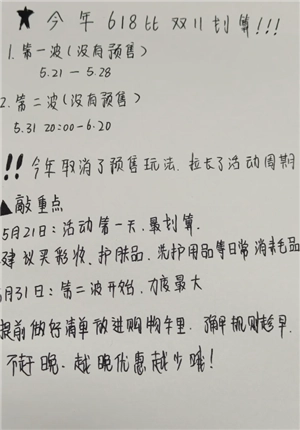 ★ 今年618比双11划算!!!
1.第一波(没有预售)
5.21-5.28
2.第二波(没有预售)
5.31 20:00-6.20
!! 今年取消了预售玩法,拉长了活动周期
▲敲重点
5月21日:活动第一天,最划算.
建议买彩妆、护肤品、洗护用品等日常消耗品
5月31日:第二波开始,力度最大
提前做好清单放进购物车里.确单规则趁早
不赶晚.越晚优惠越少哦!